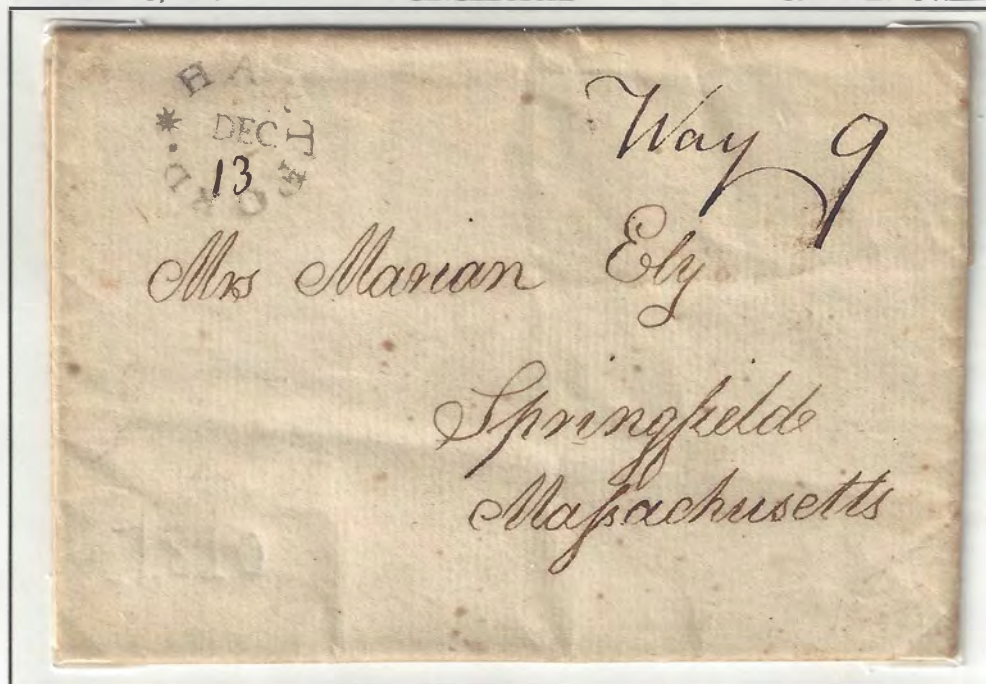 HARTFORD.
DEC
13
Way 9
Mrs Marian Ely
Springfield
Maſsachusetts